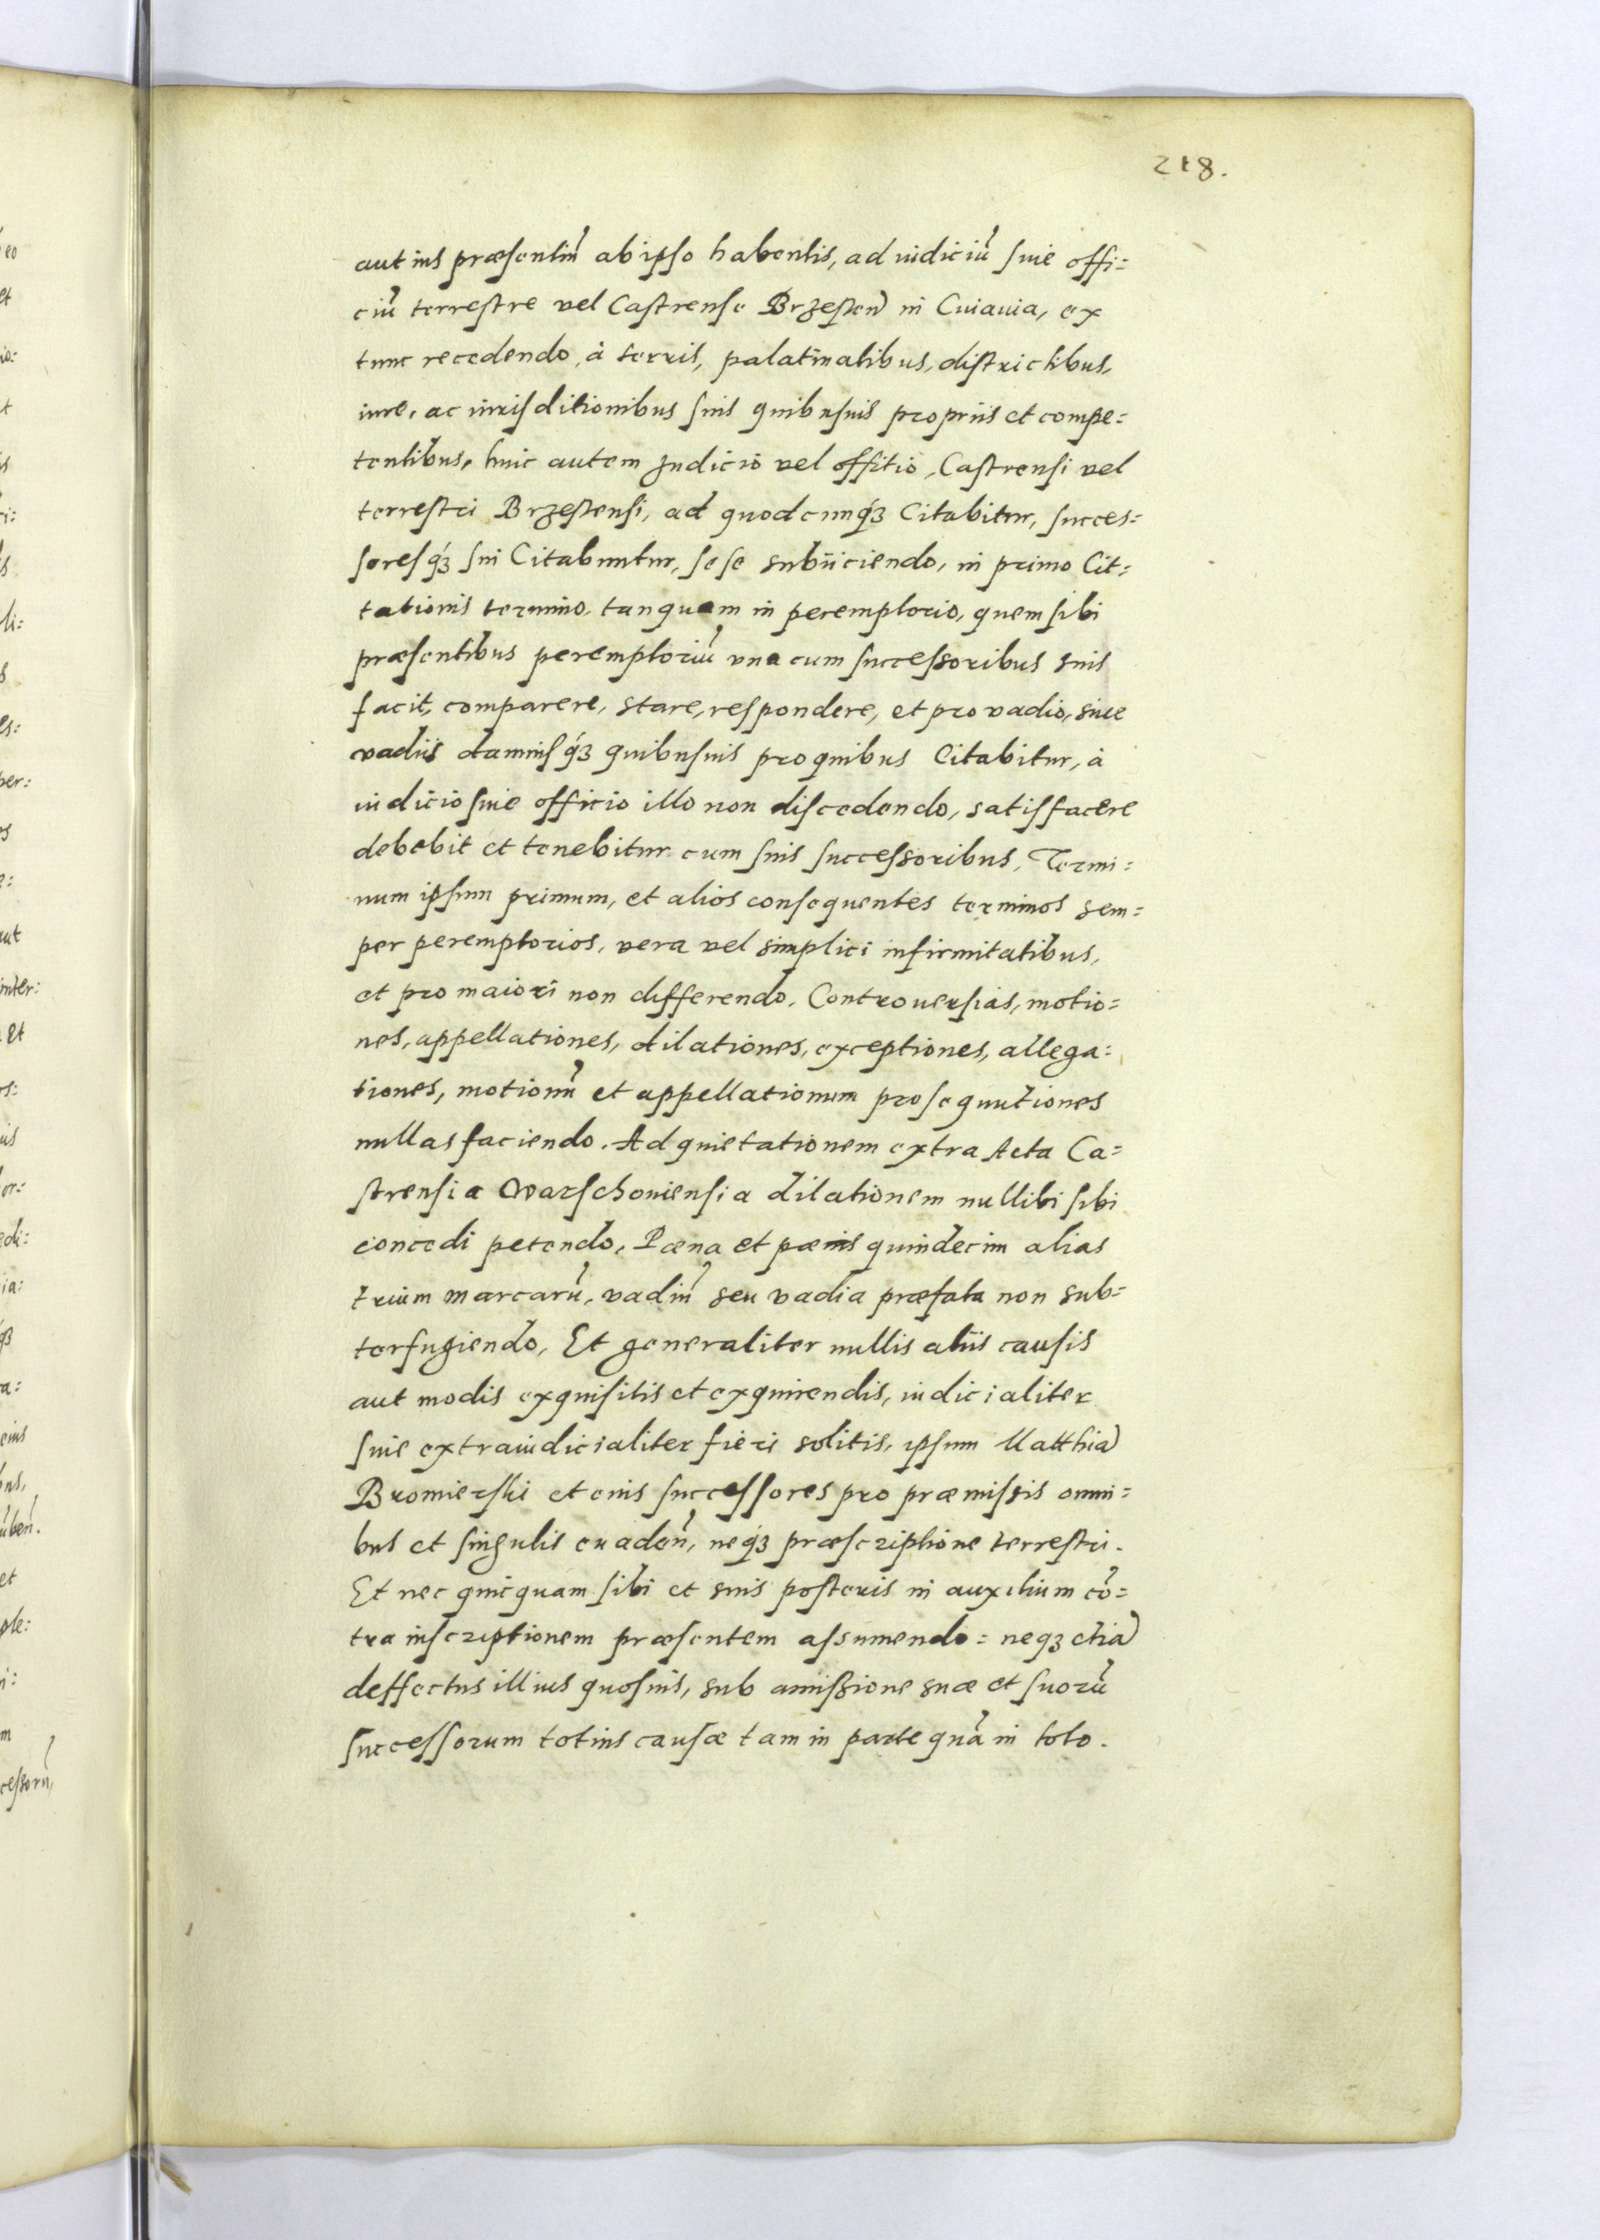 218.
aut ius præsentiũ ab ipso habentis, ad iudiciũ siue offi=
ciũ terrestre vel Castrense Brzesten̄ in Cuiauia, ex
tunc recedendo, à terris, palatinatibus, districtibus,
iure, ac iurisditionibus suis quibusuis propriis et compe=
tentibus, huic autem Judicio vel offitio, Castrensi vel
terrestri Brzestensi, ad quodcunq́ꝫ Citabitur, succes=
soresq́ꝫ sui Citabuntur, sese subiiciendo, in primo Cit=
tationis termino, tanquam in peremptorio, quem sibi
præsentibus peremptoriũ vna cum successoribus suis
facit, comparere, stare, respondere, et pro vadio, siue
vadiis damnisq́ꝫ quibusuis pro quibus Citabitur, à
iudicio siue officio illo non discedendo, satisfacere
debebit et tenebitur cum suis successoribus, Termi=
num ipsum primum, et alios consequentes terminos sem=
per peremptorios, vera vel simplici infirmitatibus,
et pro maiori non differendo, Controuersias, motio=
nes, appellationes, dilationes, exceptiones, allega=
tiones, motionũ et appellationum prosequutiones
nullas faciendo. Ad quietationem extra Acta Ca=
strensia Warschouiensia dilationem nullibi sibi
concedi petendo, Pæna et pænis quindecim alias
trium marcarũ, vadiũ seu vadia præfata non sub=
terfugiendo, Et generaliter nullis aliis causis
aut modis exquisitis et exquirendis, iudicialiter
siue extraiudicialiter fieri solitis, ipsum Matthiã
Bromierski et eius successores pro præmissis omni=
bus et singulis euadeñ, neq́ꝫ præscriptione terrestri.
Et nec quicquam sibi et suis posteris in auxilium cõ=
tra inscriptionem præsentem assumendo= neqꝫ etiã
deffectus illius quosuis, sub amißione suæ et suorũ
successorum totius causæ tam in parte quã in toto.